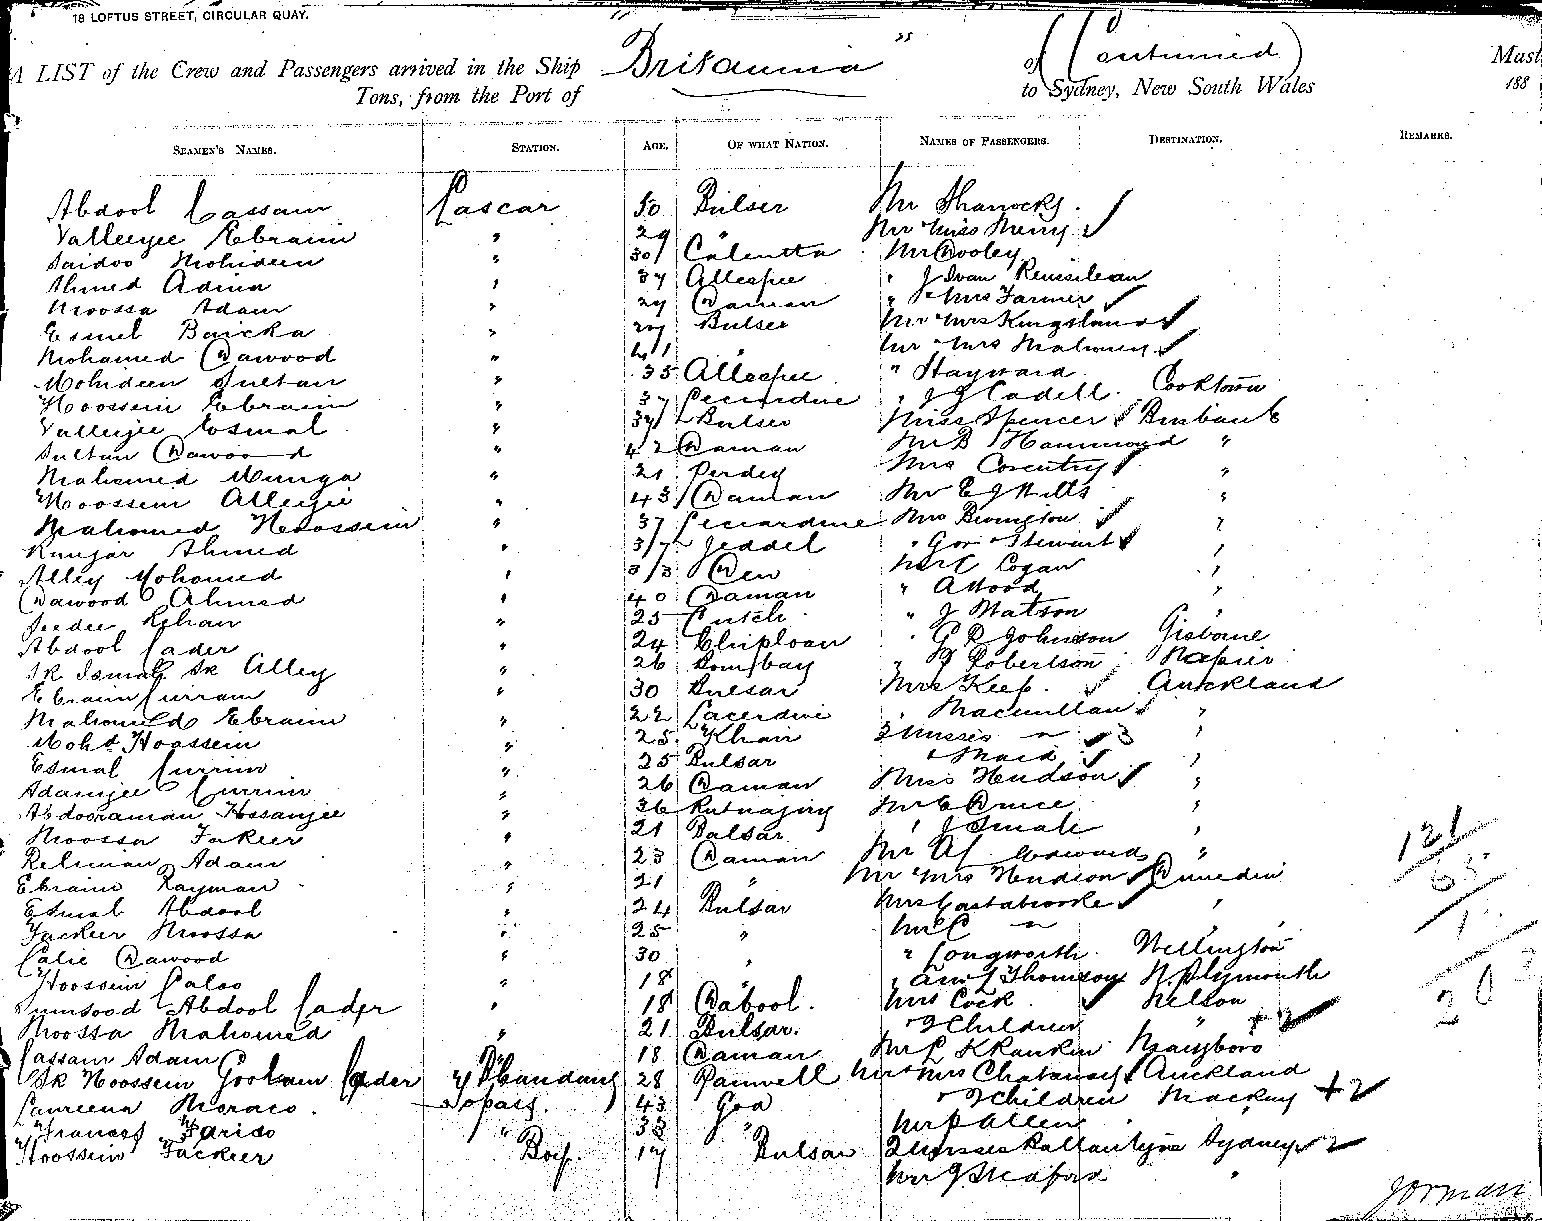 18 LOFTUS STREET, CIRCULAR QUAY.
A LIST of the Crew and Passengers arrived in the Ship "Britannia" of (Continued) Mast
Tons, from the Port of to Sydney, New South Wales 188
SEAMEN'S NAMES. STATION. AGE. OF WHAT NATION. NAMES OF PASSENGERS. DESTINATION. REMARKS.
Abdool Cassam Lascar 50 Bulser Mr Sharrocks.
Valleejee Ebraim " 29 " Mr Miss Merry
Saidoo Mohideen " 30 Calcutta Mr Dooley
Ahmed Adma " 37 Allespee " J Ivan
Moossa Adam " 29 Daman " & Mrs Farmer
Esmel Baicka " 27 Bulser Mr Mrs Kingsland
Mohamed Dawood " 41 " Mr Mrs Mahoney
Mohideen Sultan " 35 Allespee " Hayward
Hoossein Ebraim " 37 " J J Cadell. Cooktown
Valleejee Esmal " 37 Bulser Miss Spencer Brisbane
Sultan Dawood " 42 Daman Mr B Hammond "
Mahomed Munga " 21 Mrs Coventry "
Hoossein Alleejee " 43 Daman Mr E J Hills "
Mahomed Hoossein " 37 Mrs Bevington "
Ahmed " 37 Jeddel " Gov Stewart "
Alley Mohomed " 33 Mr C Cogan "
Dawood Ahmed " 40 Daman " A Wood "
Seedee Khan " 25 Cutch " J Watson "
Abdool Cader 24 Chiploan " G R Johnson Gisborne
Sk Ismal Sk Alley " 26 Bombay " J Robertson Napier
Ebraim Curram " 30 Bulsar Mrs Keep. Auckland
Mahomed Ebraim " 22 " Macmillan "
Mohd Hoossein " 25 Khair 3 Misses " 3 "
Esmal Currim " 25 Bulsar & Maid "
Adamjee Currim " 26 Daman Miss Hudson "
Abdooraman Hssanjee " 36 Rutnagiry Mr E Druce "
Moossa Fakeer " 21 Balsar " J Smale "
Rehman Adam " 23 Daman Mr Edwards "
Ebraim Rayman " 21 " Mr Mrs Hudson Dunedin
Esmal Abdool " 24 Bulsar Mrs Eastabrooke "
Fackeer Moossa " 25 " Mr C " "
Calie Dawood " 30 " " Longworth Wellington
Hoossein Caloo " 18 " " Thomson N. Plymouth
Abdool Cader " 18 Cabool. Mrs Cock Nelson
Moossa Mahomed " 21 Bulsar. 2 Children " + 2
Cassam Adam " 18 Daman Mr L K Rankin Maryboro
Sk Hoossein Goolam Cader Bhandary 28 Panwell Mr Mrs Chatansey Auckland
Laureena Moraco. Topass. 43 Goa 2 Children Mackay + 2
Frances Farido " 33 " Mr P Allen "
Hoossein Fackeer Boy. 17 Bulsar 2 Misses Ballantyne Sydney 2
Mr J "
121
65
1
203